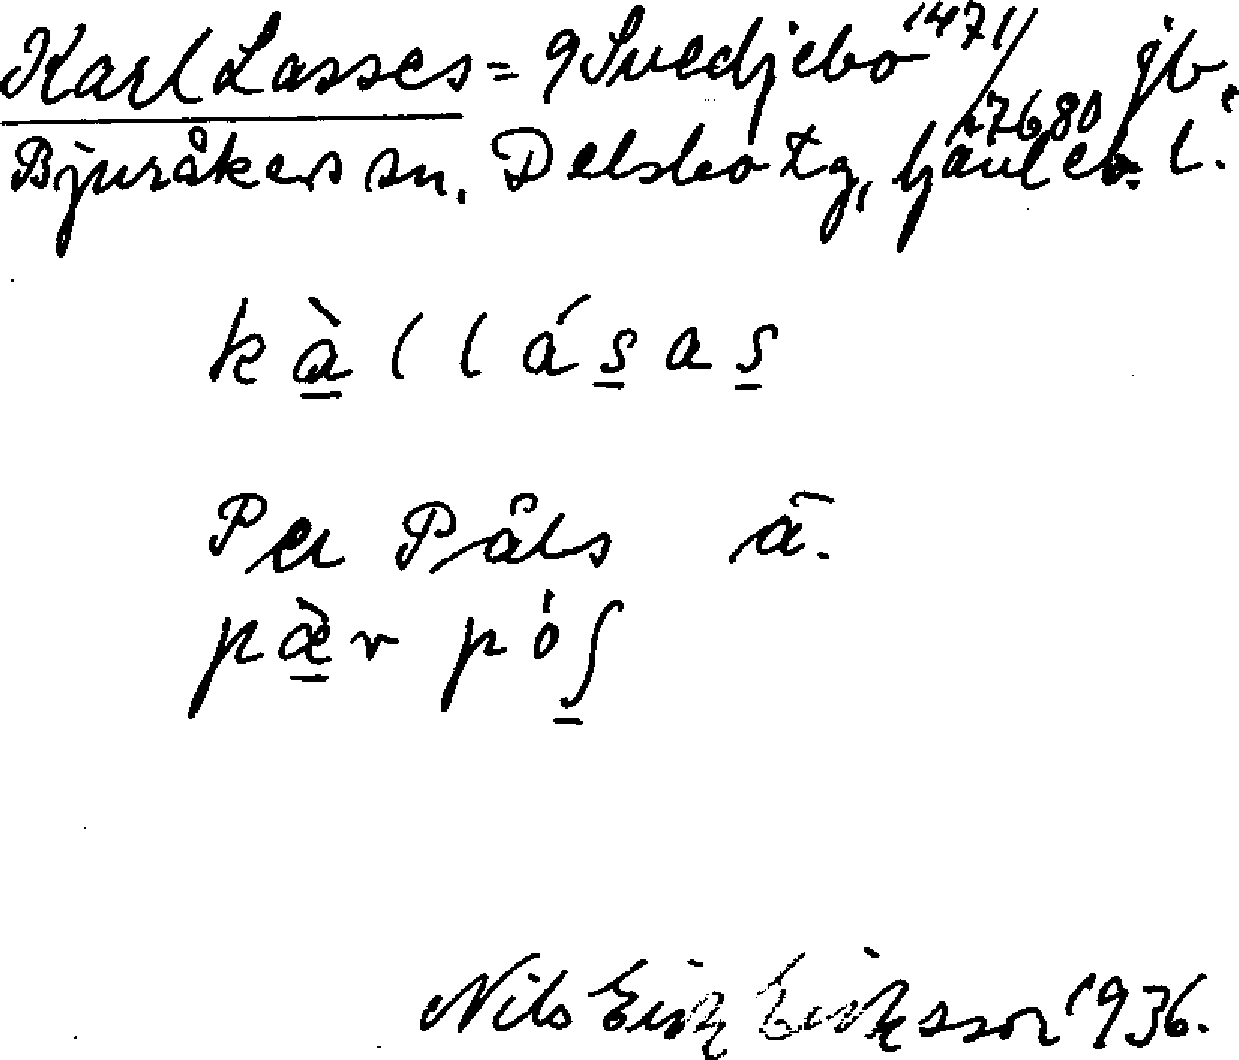 Karl Lasses = 9 Svedjebo 1471/27680 jb.
Bjuråkers sn, Delsbo tg, Gävleb. l.
kàllásas
Per Påls ä.
pæ̀r pós
Nils Erik Eriksson 1936.